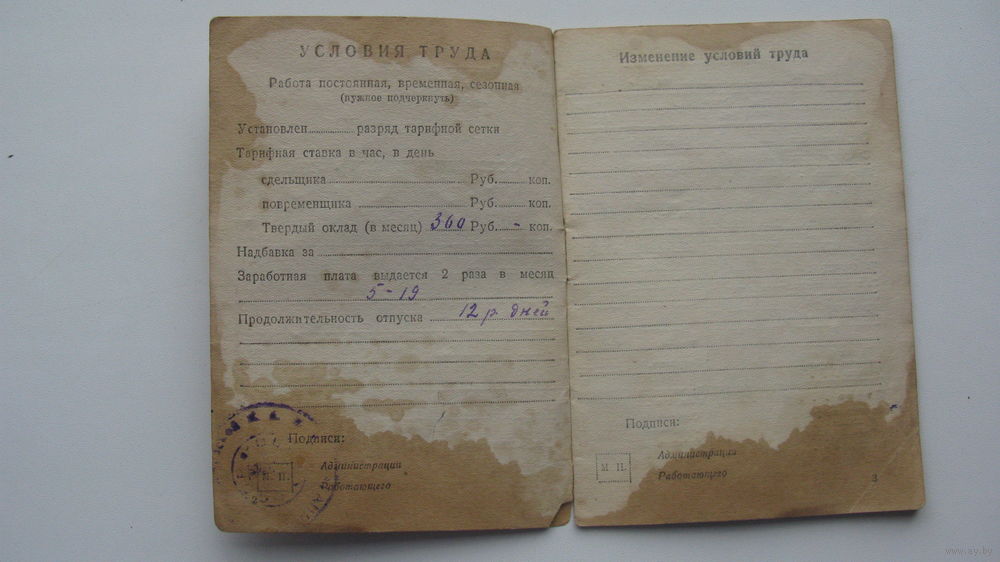 УСЛОВИЯ ТРУДА
Работа постоянная, временная, сезонная
(нужное подчеркнуть)
Установлен.............. разряд тарифной сетки
Тарифная ставка в час, в день
сдельщика ........ Руб. ........ коп.
повременщика ........ Руб. ........ коп.
Твердый оклад (в месяц) 360 Руб. - коп.
Надбавка за
Заработная плата выдается 2 раза в месяц
5-19
Продолжительность отпуска 12 р. дней
Подписи:
М. П.
Администрации
Работающего
2
Изменение условий труда
Подписи:
М. П.
Администрация
Работающего
3
www.ay.by